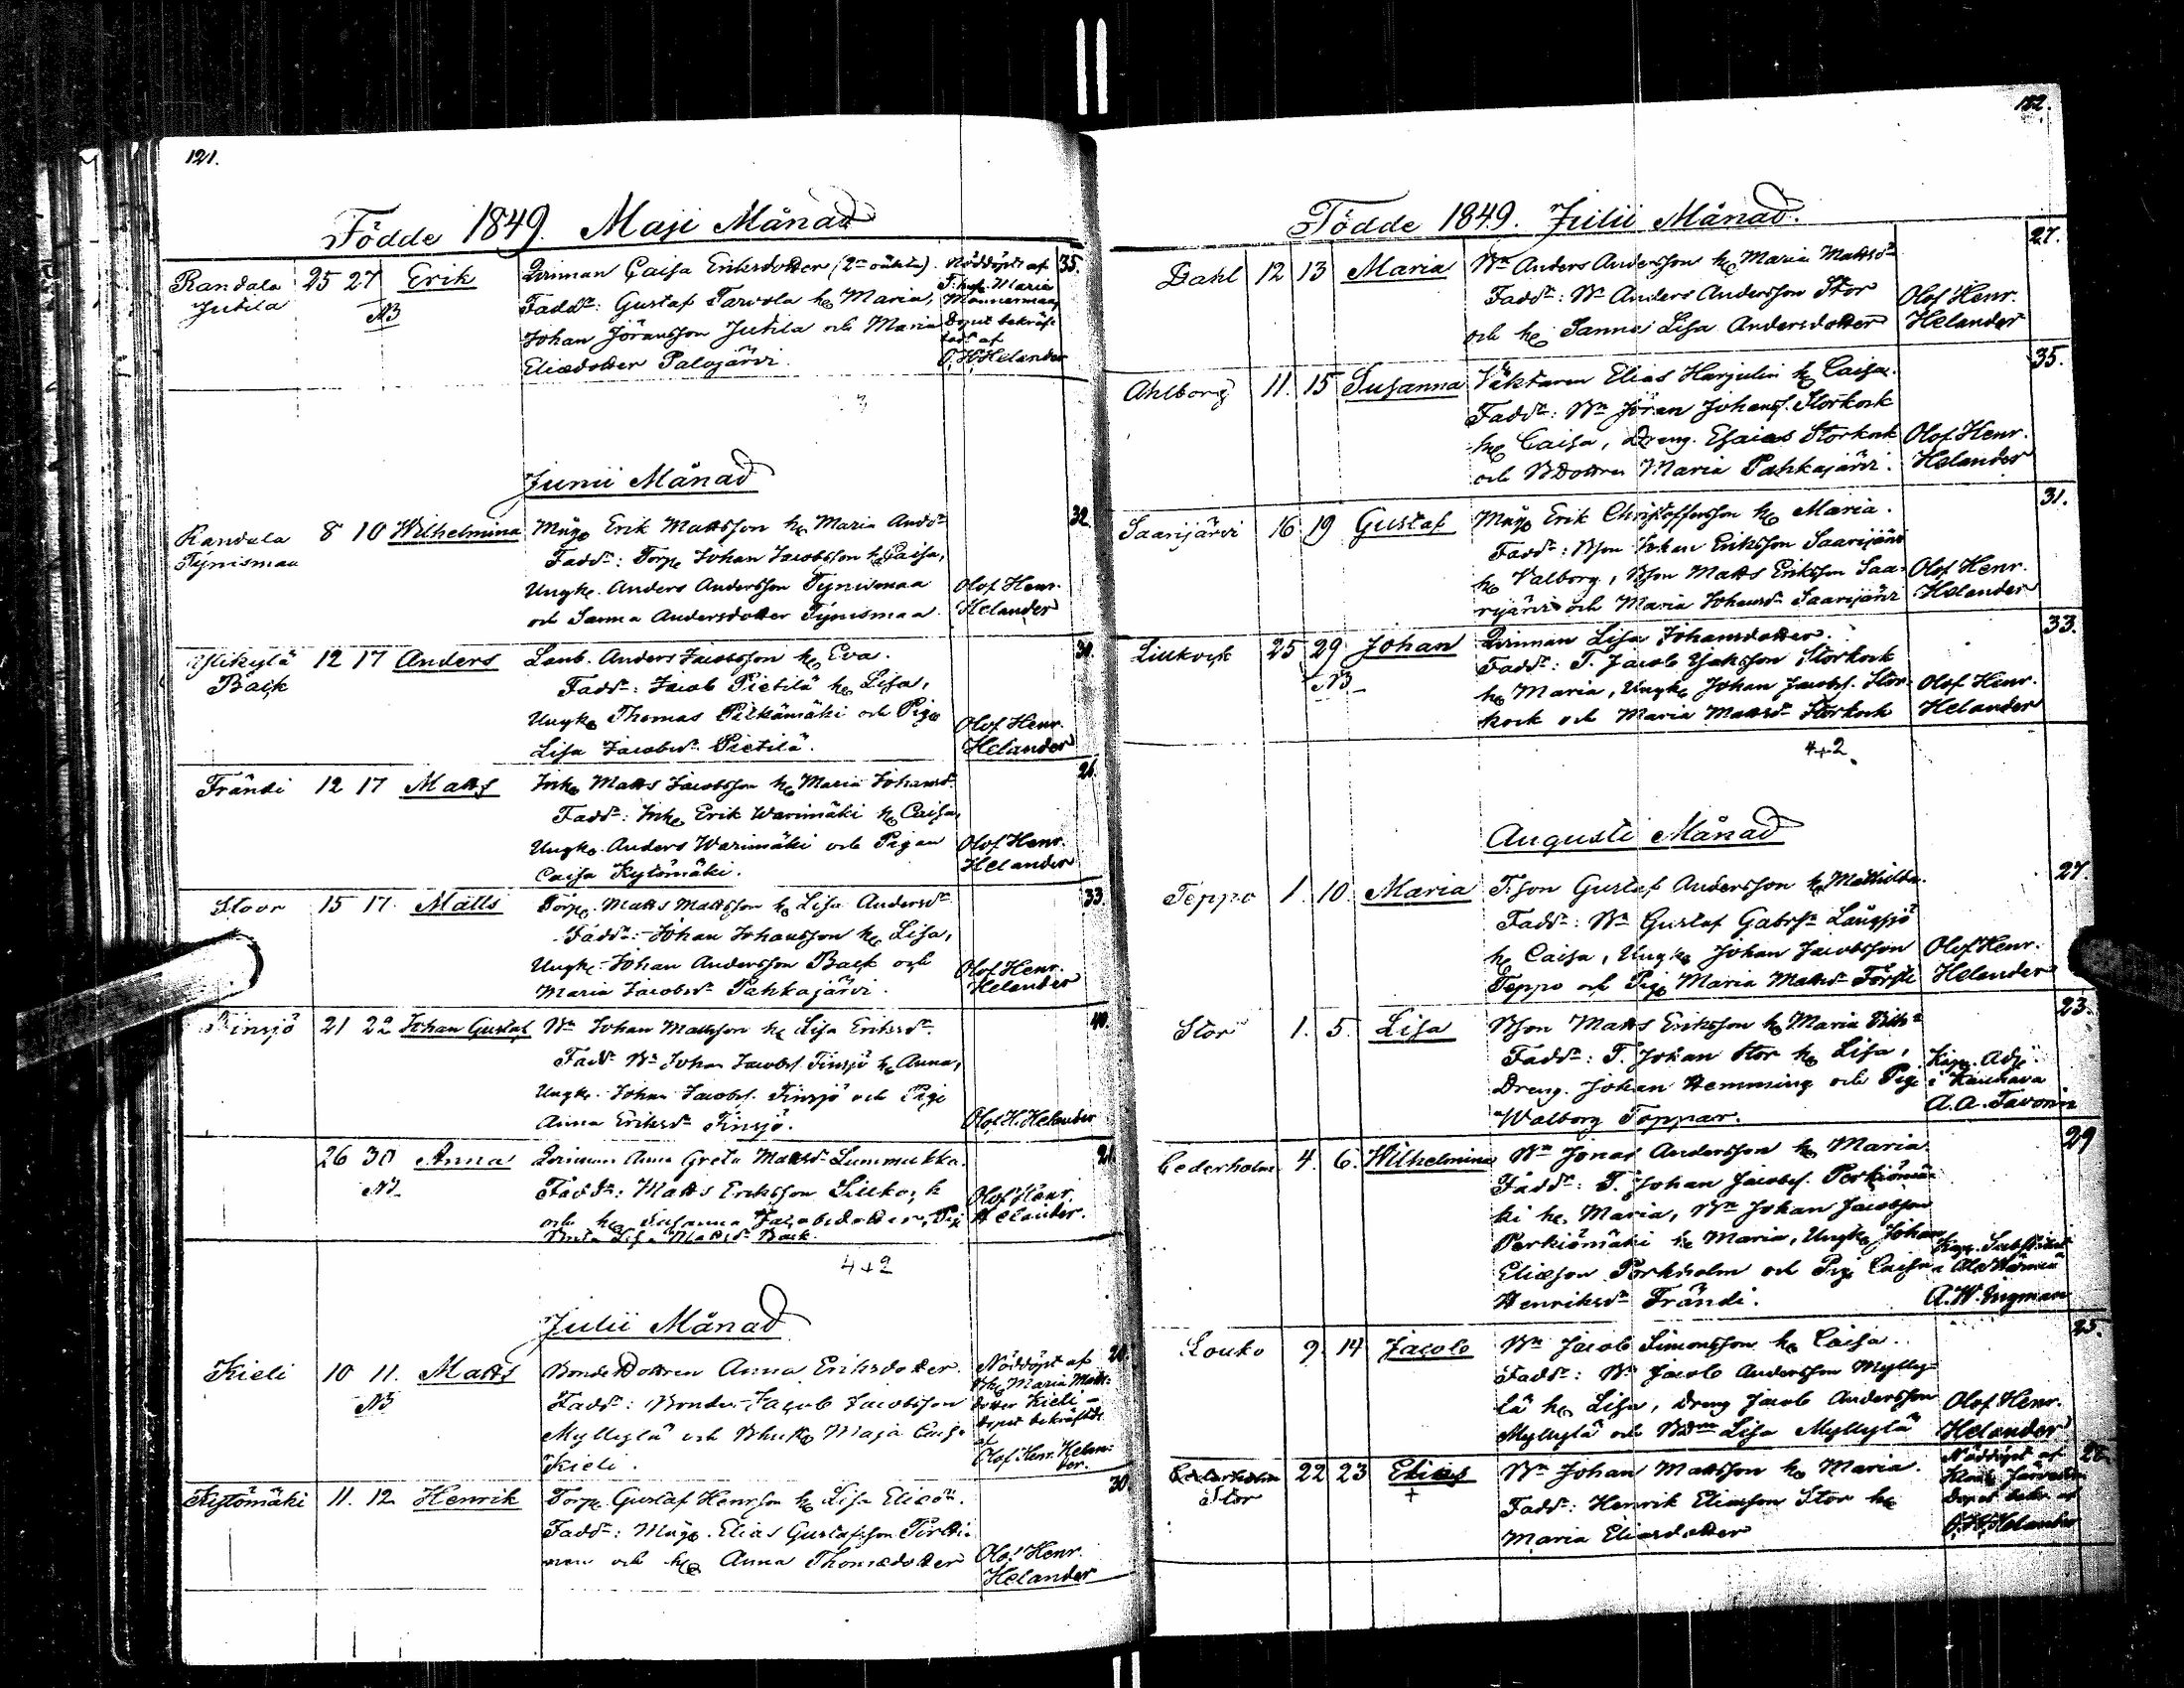 121.
Födde 1849. Maji Månad
Randala 25 27 Erik Qvinnan Caisa Eriksdotter (2dra oäkta). Nöddöpt af 35.
Jutila NB Fadd: Gustaf Tarvola h Maria, Maria Mannermaa,
Johan Jöransson Jutila och Maria Dopet bekräf-
Eliædotter Palojärvi. tadt af O. H. Helander
Junii Månad
Randala 8 10 Wilhelmina Erik Mattsson h Maria And 32.
Tynismaa Fadd: Torp Johan Jacobsson h Caisa,
Ungk. Anders Andersson Tynismaa Olof Henr.
och Sanna Andersdotter Tynismaa. Helander
Ylikylä 12 17 Anders Anders Jacobsson h Eva. 30.
Back Fadd: Jacob Pietilä h Lisa,
Ungk Thomas Pitkämäki och Pig Olof Henr.
Lisa Jacobsd Pietilä. Helander
Frändi 12 17 Matts Inh Matts Jacobsson h Maria Johansd 26.
Fadd: Inh Erik Warimäki h Caisa,
Ungk. Anders Warimäki och Pigan Olof Henr.
Caisa Kytömäki. Helander
Stoor 15 17. Matts Torp. Matts Mattsson h Lisa Andersd 33.
Fadd: Johan Johansson h Lisa,
Ungk. Johan Andersson Back och Olof Henr.
Maria Jacobsd Pahkajärvi. Helander
Finsjö 21 22 Johan Gustaf Bn Johan Mattsson h Lisa Eriksd 40.
Fadd Bn Johan Jacobs. Finsjö h Anna,
Ungk. Johan Jacobs. Finsjö och Pig
Anna Eriksd Finsjö. Olof H. Helander
26 30 Anna Qvinnan Anna Greta Mattsd Lummukka. 21.
NB Fadd: Matts Eriksson Lillkock Olof Henr.
och h Susanna Jacobsdotter, Pig Helander.
Lisa Mattsd Back.
4+2
Julii Månad
Kieli 10 11. Matts Bondedottren Anna Eriksdotter. Nöddöpt af 20.
NB Fadd: Bonden Jacob Jacobsson Maria Matts-
Myllylä och h Maja Caisa dotter Kieli
Kieli. Dopet bekräftadt af
Olof Henr. Helander.
Kytömäki 11. 12. Henrik Torp. Gustaf Henrsson h Lisa Eliæd. 30
Fadd: Elias Gustafsson
och h Anna Thomædotter Olof Henr.
Helander
122.
Födde 1849. Julii Månad.
Dahl 12 13 Maria Bn Anders Andersson h Maria Mattsd 27.
Fadd: Bn Anders Andersson Stor Olof Henr.
och h Sanna Lisa Andersdotter Helander
Ahlborg 11. 15 Susanna Väktaren Elias Harjulin h Caisa. 35.
Fadd: Bn Jöran Johans. Storkock
h Caisa, Dreng. Esaias Storkock Olof Henr.
och BDottren Maria Pahkajärvi. Helander
Saarijärvi 16 19 Gustaf Erik Christoffersson h Maria. 31.
Fadd: Bson Johan Eriksson Saarijärvi
h Valborg, Bson Matts Eriksson Saa- Olof Henr.
rijärvi och Maria Johansd Saarijärvi Helander
Lillkock 25 29 Johan Qvinnan Lisa Johansdotter. 33.
NB Fadd: T. Jacob Isaksson Storkock
h Maria, Ungk Johan Jacobs. Stor- Olof Henr.
kock och Maria Mattsd Storkock Helander
4+2
Augusti Månad
Teppo 1. 10. Maria T.son Gustaf Andersson h Mathilda. 27.
Fadd: Bn Gustaf Långsjö
h Caisa, Ungk Johan Jacobsson Olof Henr.
Teppo och Pig Maria Mattsd Försti Helander
Stor 1. 5. Lisa Bson Matts Eriksson h Maria 23.
Fadd: T. Johan Stor h Lisa, Kap. Adj.
Dreng. Johan Hemming och Pig i Kauhava
Walborg Toppar. A. A. Favorin
Cederholm 4. 6. Wilhelmina Bn Jonas Andersson h Maria 29
Fadd: T. Johan Jacobs. Perkiömä-
ki h. Maria, Bn Johan Jacobsson
Perkiömäki h Maria, Ungk Johan Kap. Substitut
Eliæson Porkholm och Pig Caisa i Alahärmä
Henriksd Frändi. A. W. Engman
Louko 9. 14 Jacob Bn Jacob Simonsson h Caisa. 25.
Fadd: Bn Jacob Andersson Mylly-
lä h Lisa, Dreng Jacob Andersson Olof Henr.
Myllylä och Lisa Myllylä Helander
Cederholm 22 23 Elias Bn Johan Mattsson h Maria. Nöddöpt af
Stor + Fadd: Henrik Eliasson Stor h Dopet bekr. af
Maria Eliasdotter O. H. Helander